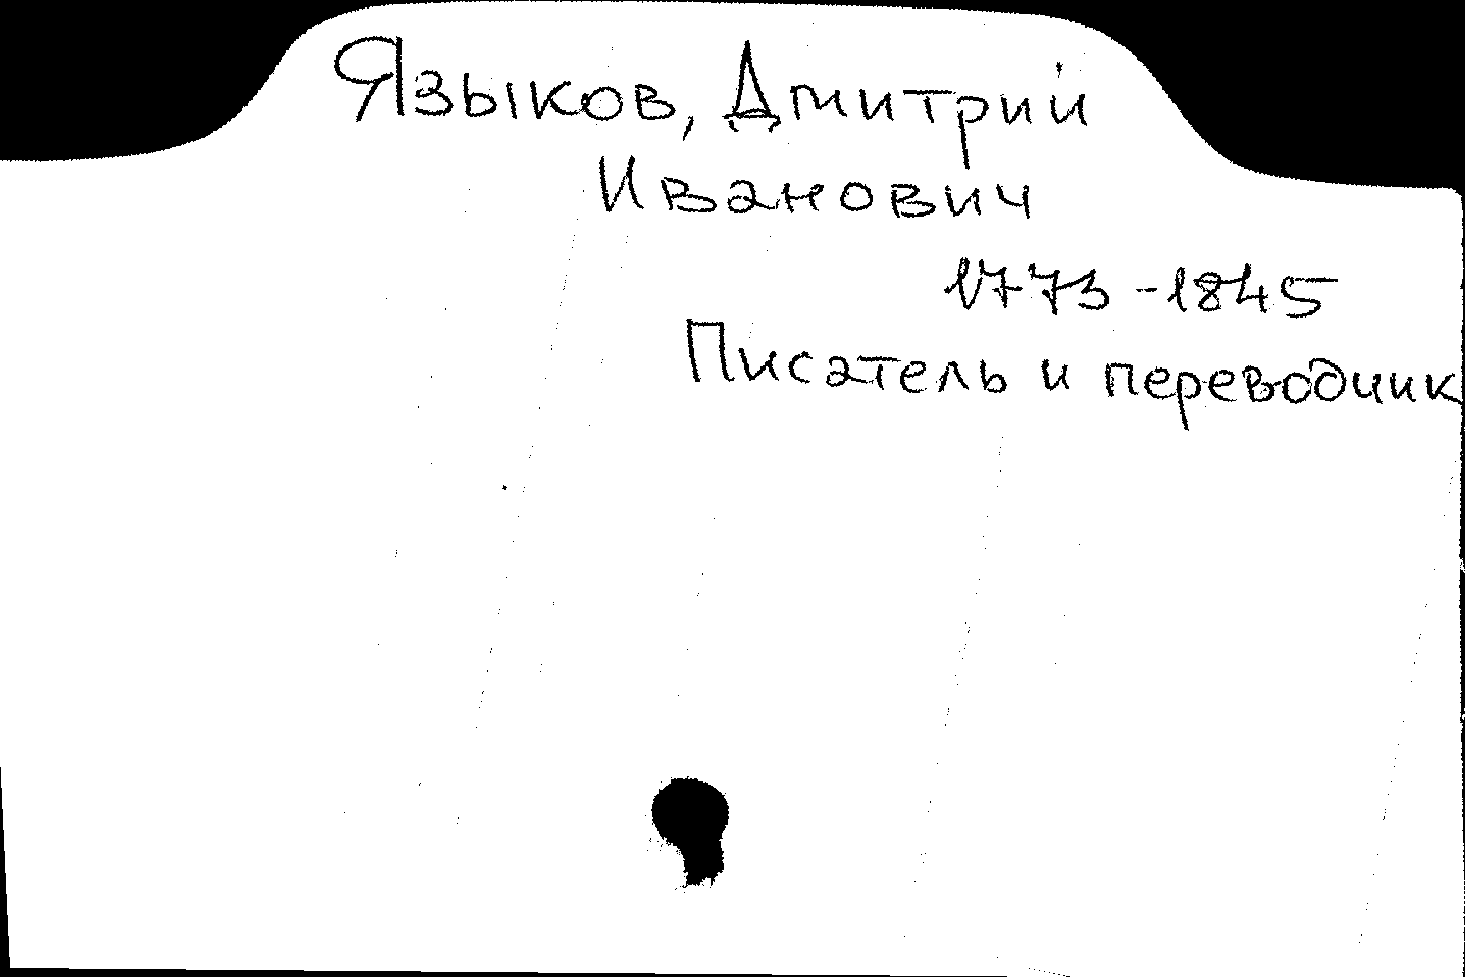 Языков, Дмитрий
Иванович
1773-1845
Писатель и переводчик